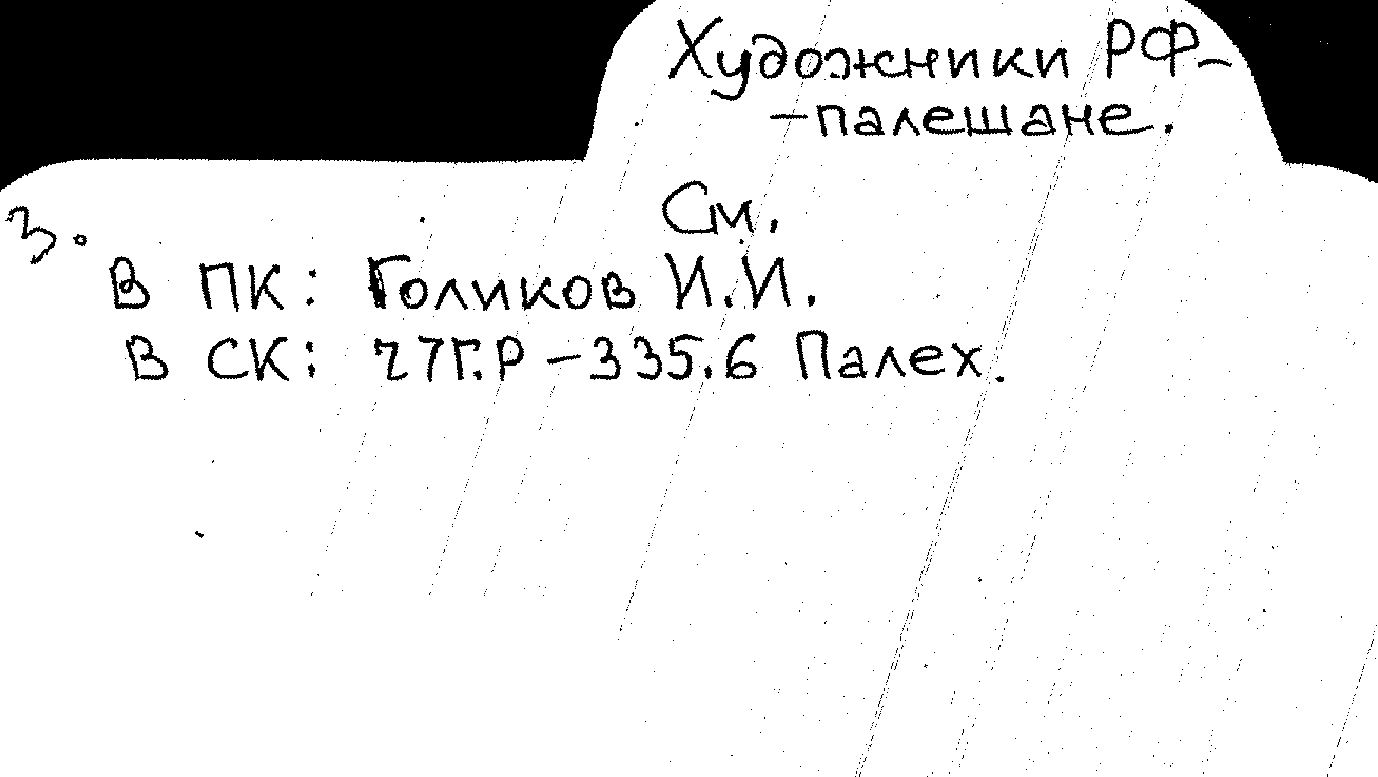 Художники РФ-
-палешане.
См.
3.
В ПК: Голиков И.И.
В СК: 27Г.Р-335.6 Палех.